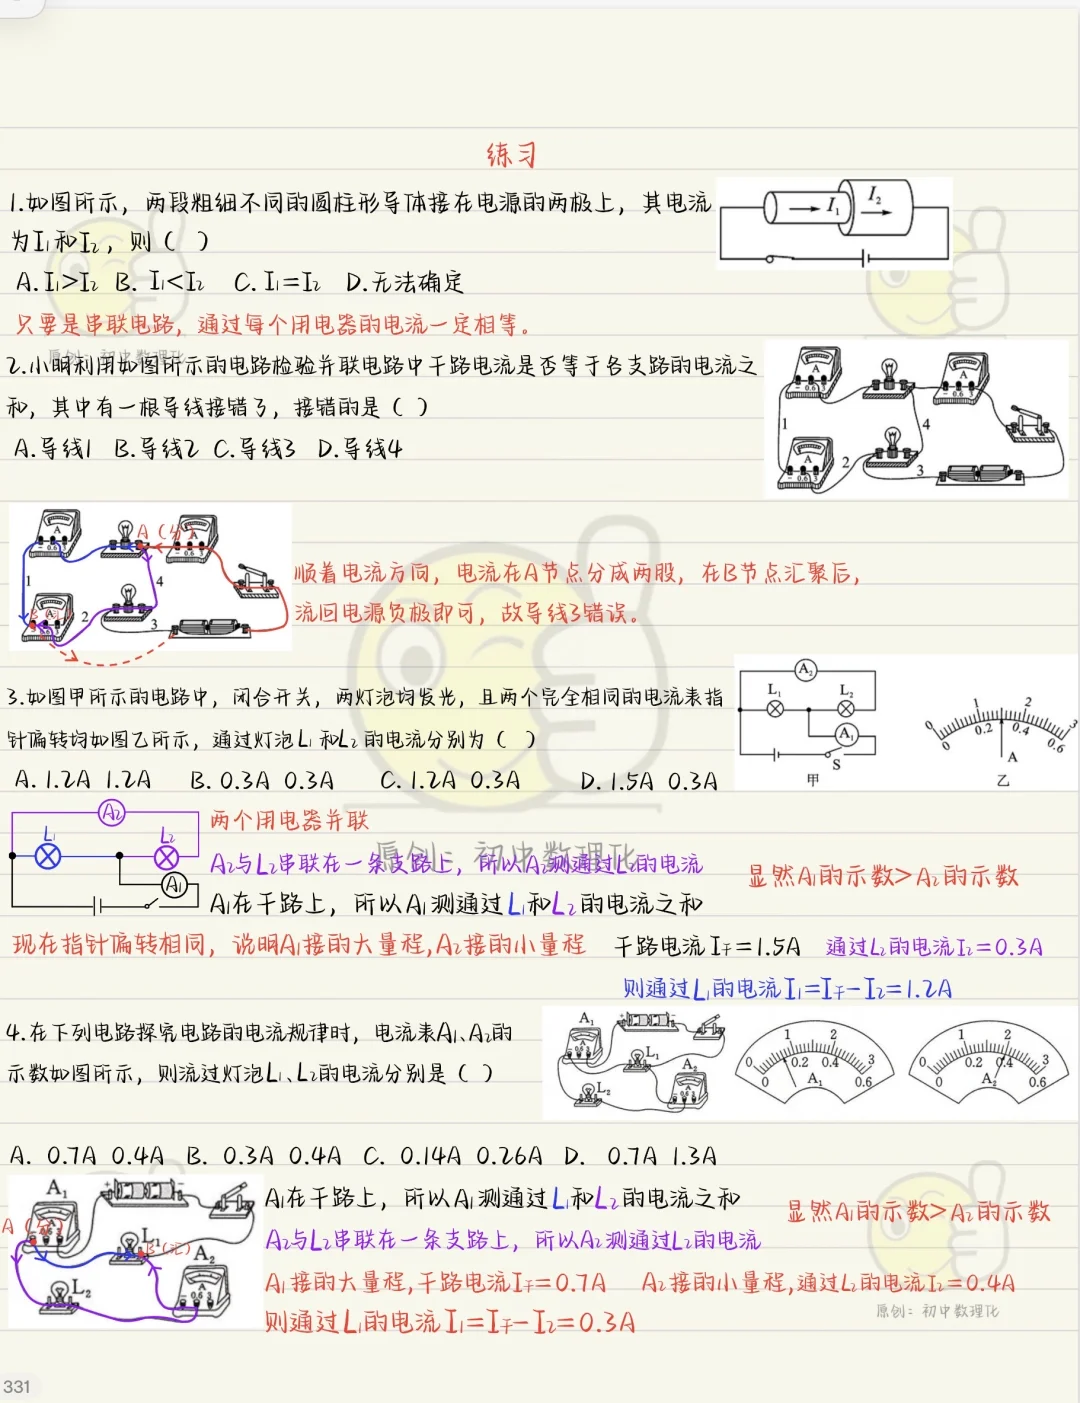 练习
1.如图所示，两段粗细不同的圆柱形导体接在电源的两极上，其电流
为I₁和I₂，则（ ）
A.I₁>I₂ B. I₁<I₂ C. I₁=I₂ D.无法确定
I₁ I₂
只要是串联电路，通过每个用电器的电流一定相等。
原创：初中数理化
2.小明利用如图所示的电路检验并联电路中干路电流是否等于各支路的电流之
和，其中有一根导线接错了，接错的是（ ）
A.导线1 B.导线2 C.导线3 D.导线4
A A
- 0.6 3 - 0.6 3
1 4
A
- 0.6 3
2 3
A A（分） A
- 0.6 3 - 0.6 3
1 4
2 3
顺着电流方向，电流在A节点分成两股，在B节点汇聚后，
流回电源负极即可，故导线3错误。
3.如图甲所示的电路中，闭合开关，两灯泡均发光，且两个完全相同的电流表指
针偏转均如图乙所示，通过灯泡L₁和L₂的电流分别为（ ）
A. 1.2A 1.2A B. 0.3A 0.3A C. 1.2A 0.3A D. 1.5A 0.3A
A₂
L₁ L₂
A₁
S
甲
0 1 2 3
0 0.2 0.4 0.6
A
乙
A₂
L₁ L₂
A₁
两个用电器并联
A₂与L₂串联在一条支路上，所以A₂测通过L₂的电流
原创：初中数理化
显然A₁的示数>A₂的示数
A₁在干路上，所以A₁测通过L₁和L₂的电流之和
现在指针偏转相同，说明A₁接的大量程,A₂接的小量程
干路电流I干=1.5A 通过L₂的电流I₂=0.3A
则通过L₁的电流I₁=I干-I₂=1.2A
4.在下列电路探究电路的电流规律时，电流表A₁、A₂的
示数如图所示，则流过灯泡L₁、L₂的电流分别是（ ）
A₁ L₁ A₂ L₂
0 1 2 3
0 0.2 0.4 0.6
A₁
0 1 2 3
0 0.2 0.4 0.6
A₂
A. 0.7A 0.4A B. 0.3A 0.4A C. 0.14A 0.26A D. 0.7A 1.3A
A₁
A（分）
L₁
B（汇）
A₂
L₂
A₁在干路上，所以A₁测通过L₁和L₂的电流之和
显然A₁的示数>A₂的示数
A₂与L₂串联在一条支路上，所以A₂测通过L₂的电流
A₁接的大量程,干路电流I干=0.7A A₂接的小量程,通过L₂的电流I₂=0.4A
则通过L₁的电流I₁=I干-I₂=0.3A
原创：初中数理化
331